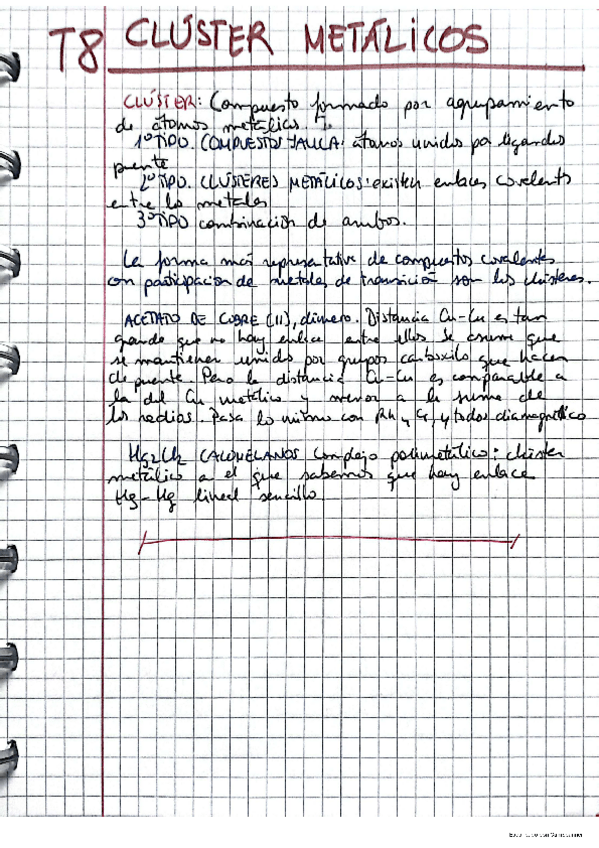 T8 CLÚSTER METÁLICOS
CLÚSTER: Compuesto formado por agrupamiento
de átomos metálicos.
1º TIPO. COMPUESTOS JAULA: átomos unidos por ligandos
puente
2º TIPO. CLÚSTERES METÁLICOS: existen enlaces covalents
entre los metales
3º TIPO combinación de ambos.
La forma más representativa de compuestos covalentes
con participación de metales de transición son los clústeres.
ACETATO DE COBRE (II), dímero. Distancia Cu-Cu es tan
grande que no hay enlace entre ellos se asume que
se mantienen unidos por grupos carboxilo que hacen
de puente. Pero la distancia Cu-Cu es comparable a
la del Cu metálico y menor a la suma de
los radios. Pasa lo mismo con Rh y Cr, y todos diamagnético
Hg2Cl2 CALOMELANOS Complejo polimetálico: clúster
metálico a el que sabemos que hay enlace
Hg-Hg lineal sencillo